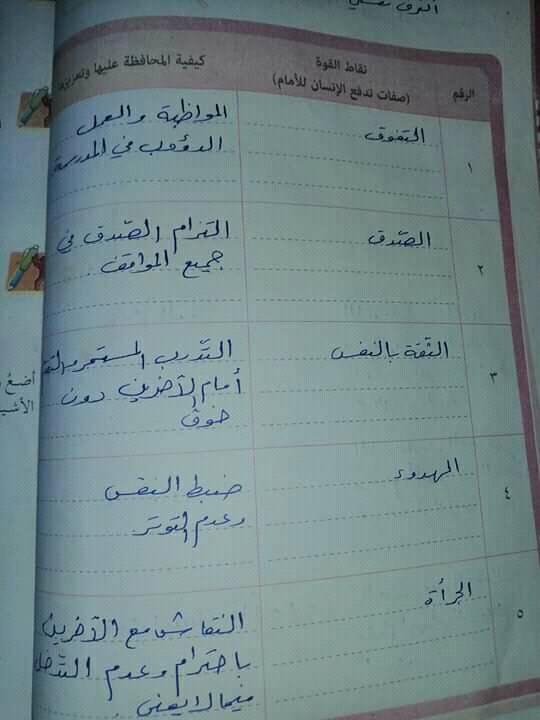 الرقم
نقاط القوة
(صفات تدفع الإنسان للأمام)
كيفية المحافظة عليها وتعزيزها
١
التفوق
المواظبة والعمل
الدؤوب في المدرسة
٢
الصّدق
التزام الصّدق في
جميع المواقف
٣
الثّقة بالنفس
التّدرب المستمر
أمام الآخرين دون
خوف
٤
الهدوء
ضبط النفس
وعدم التوتر
٥
الجرأة
النقاش مع الآخرين
باحترام وعدم التدخل
فيما لا يعني
أضع
الأشي